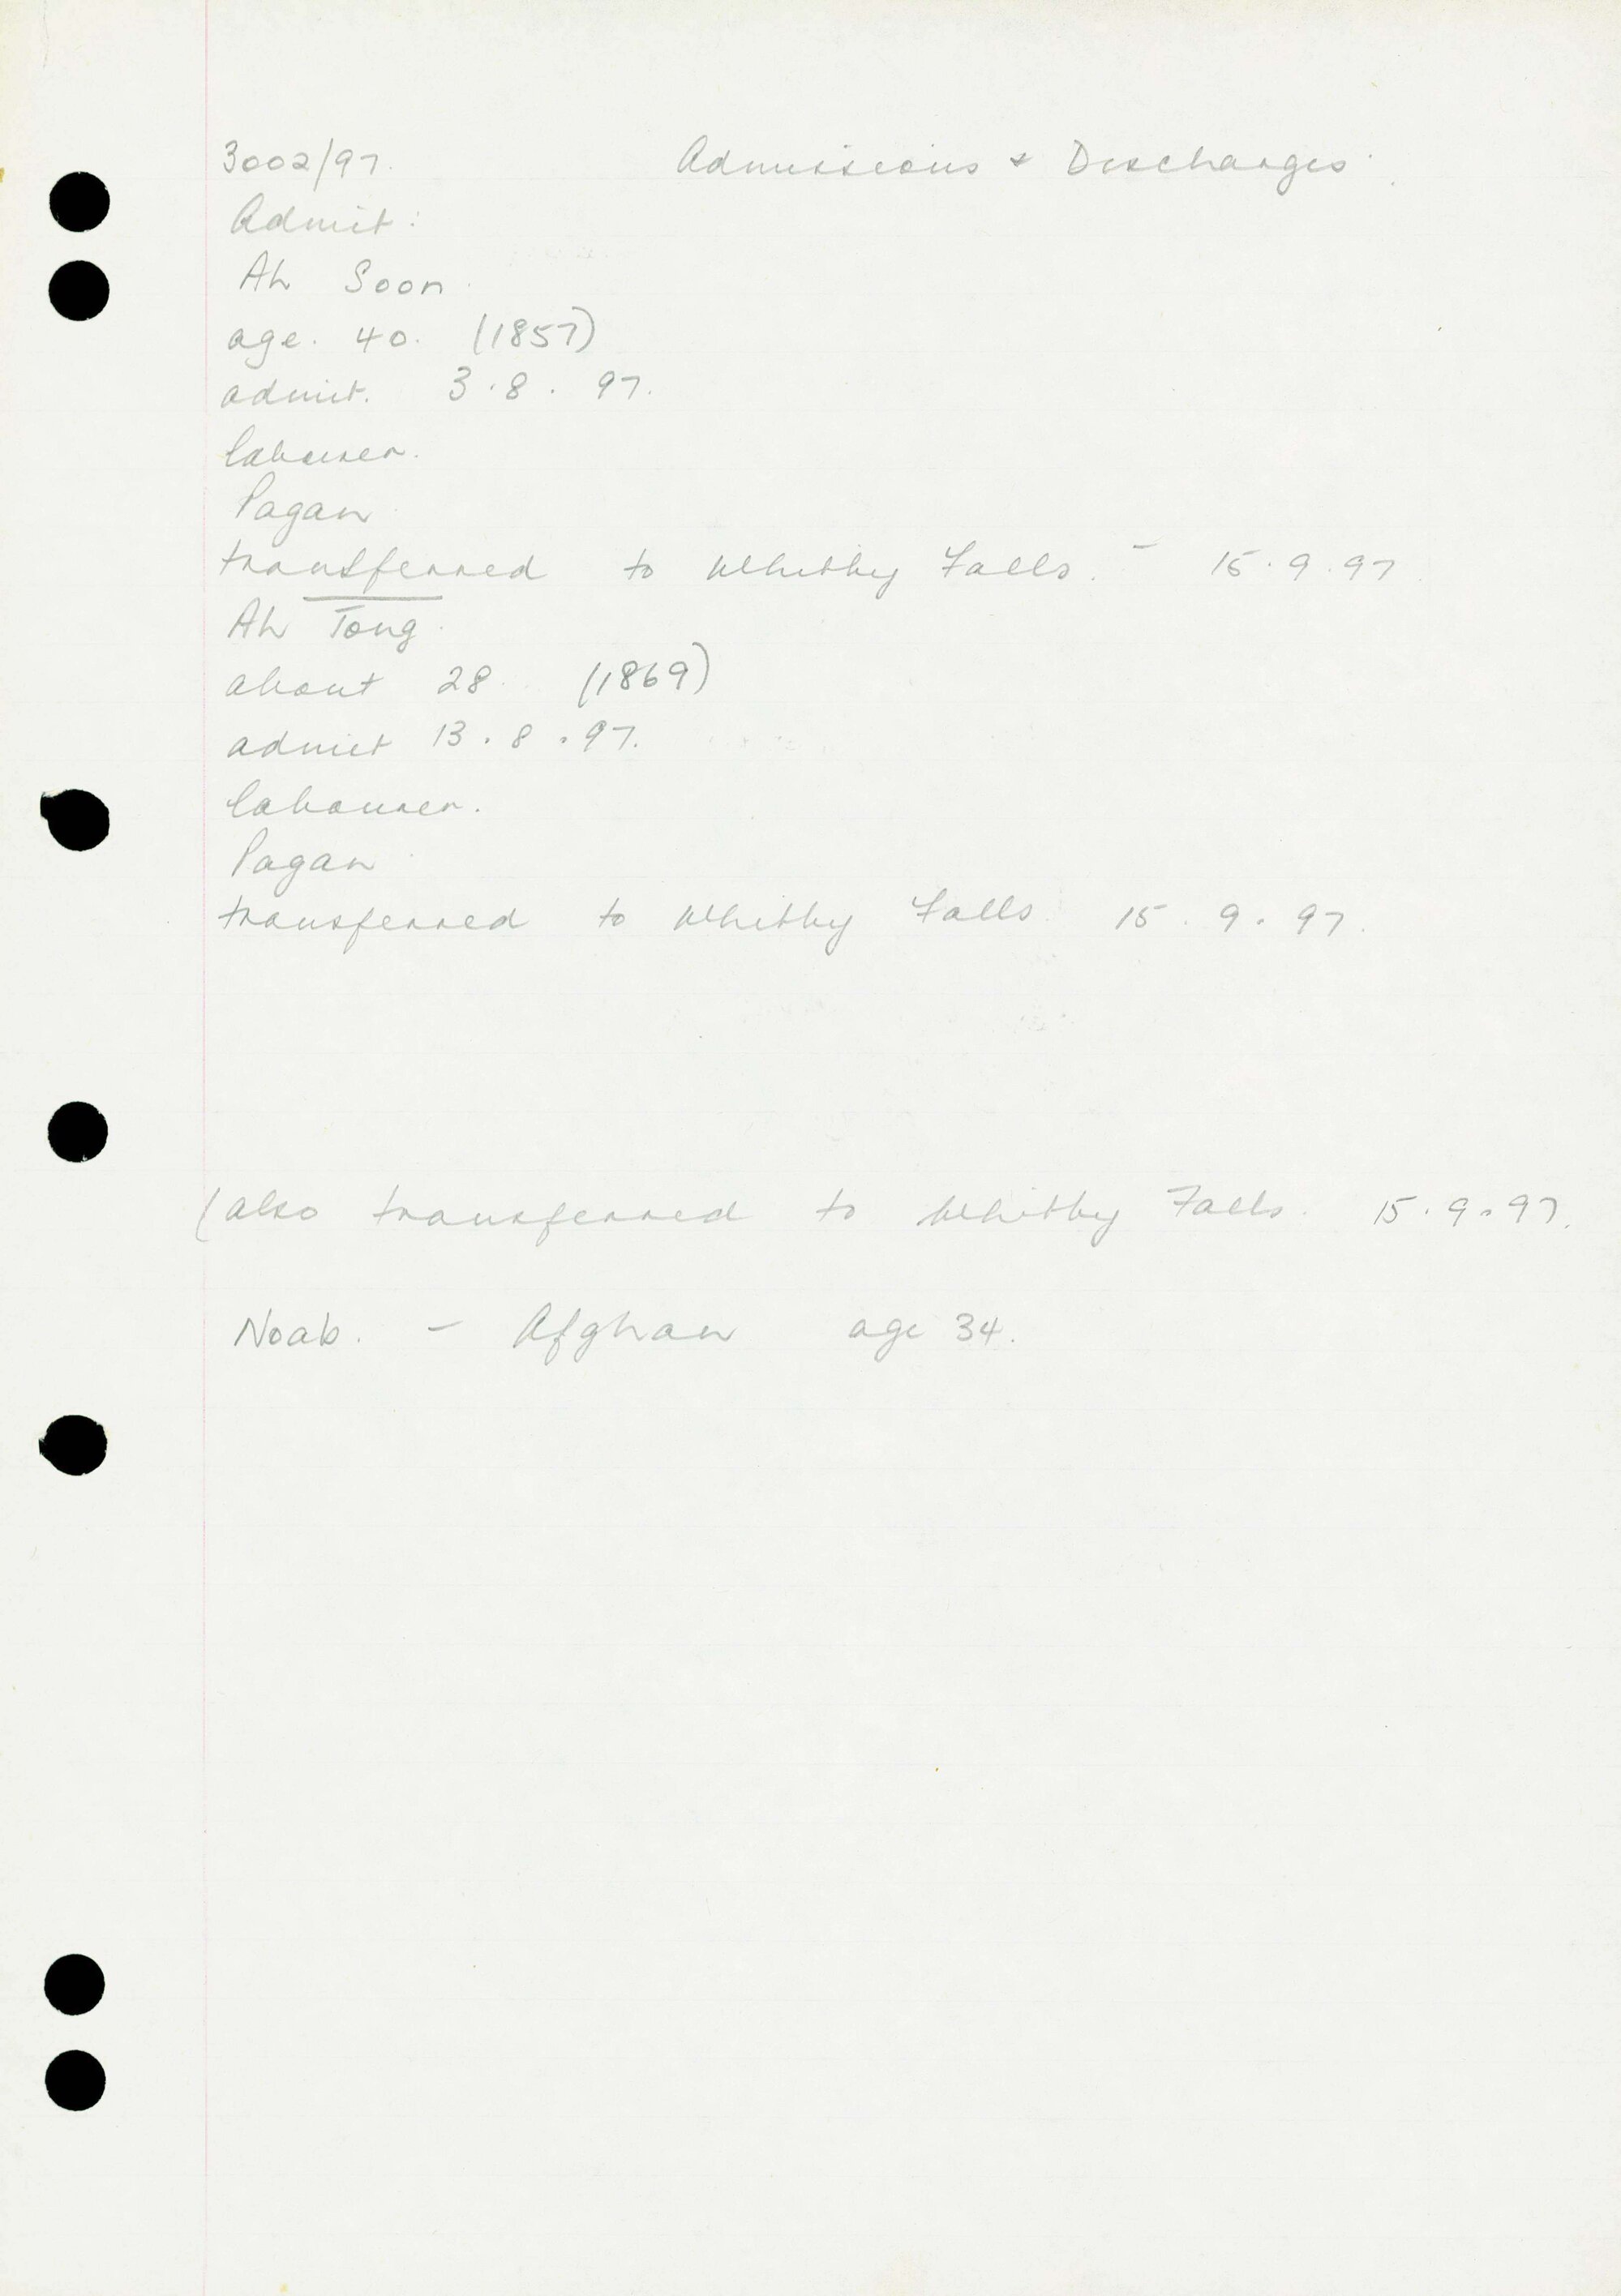 3002/97. Admissions & Discharges.
Admit:
Ah Soon.
age. 40. (1857)
admit. 3.8.97.
labourer.
Pagan
transferred to Whitby Falls. - 15.9.97
Ah Tong.
about 28. (1869)
admit 13.8.97.
labourer.
Pagan
transferred to Whitby Falls 15.9.97.
(also transferred to Whitby Falls. 15.9.97.
Noab. - Afghan age 34.